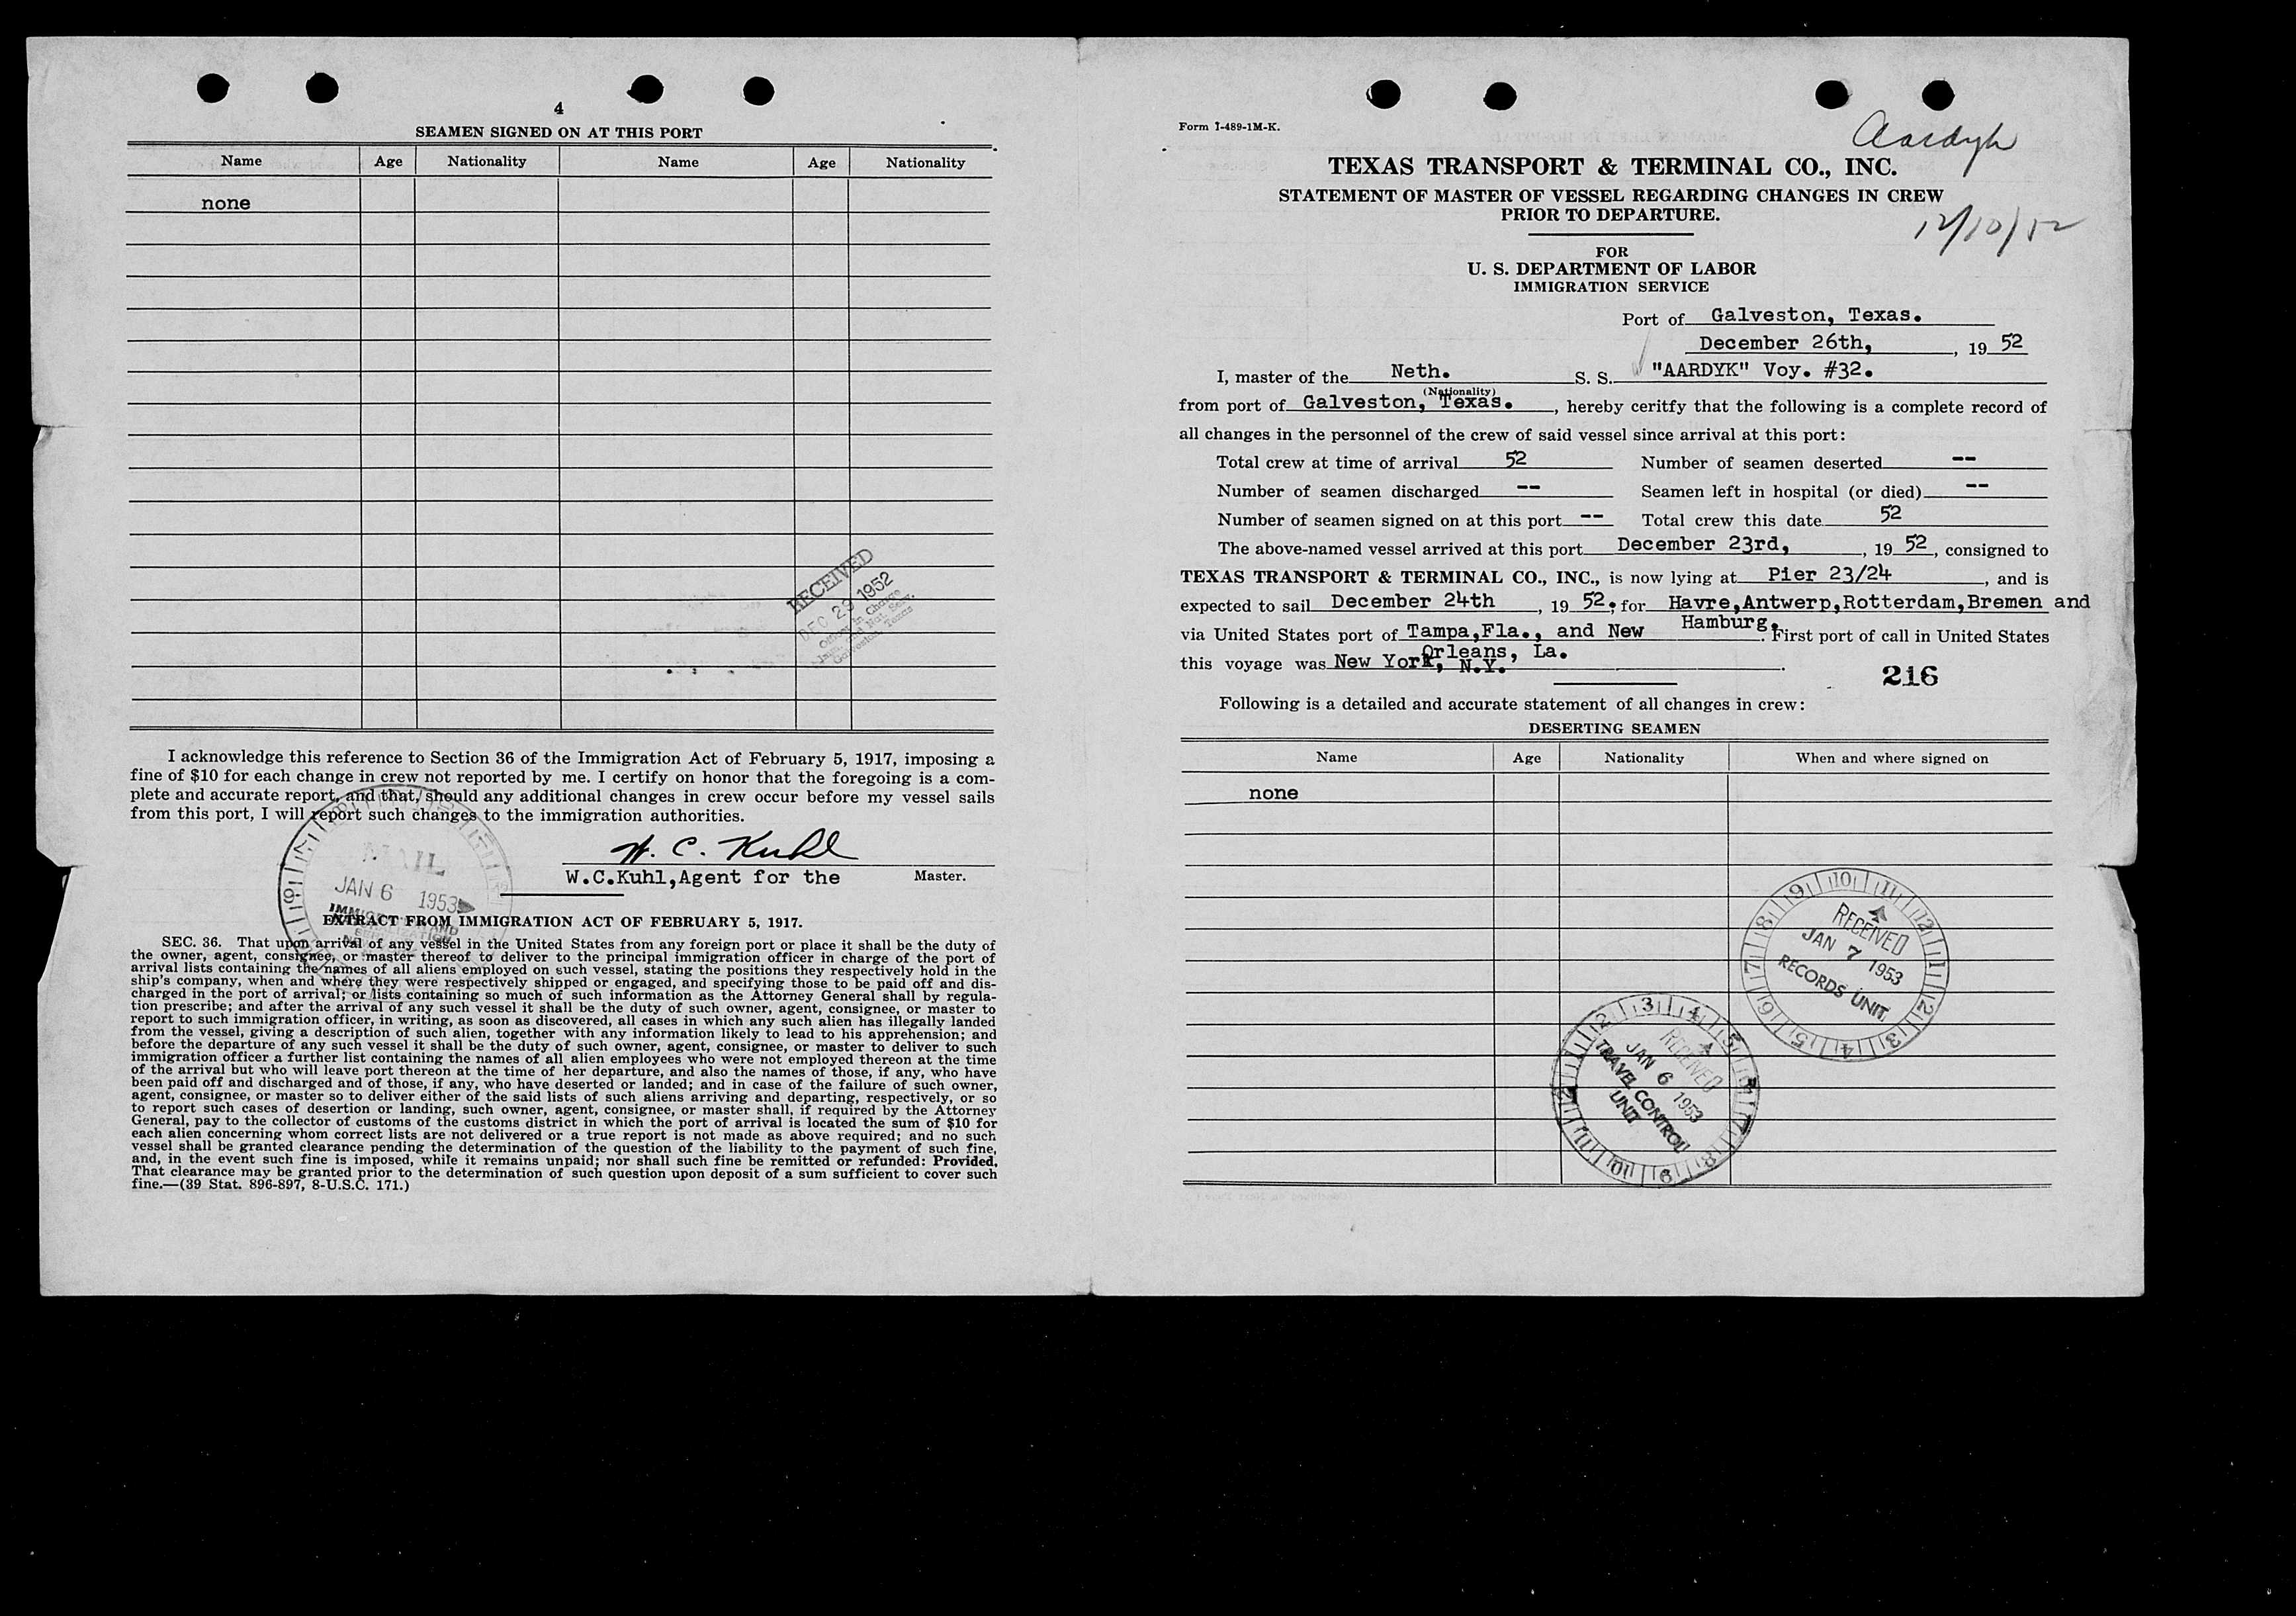 4
SEAMEN SIGNED ON AT THIS PORT
Name Age Nationality Name Age Nationality
none
RECEIVED
DEC 29 1952
Officer in Charge
Imm. and Nat. Serv.
Galveston, Texas
I acknowledge this reference to Section 36 of the Immigration Act of February 5, 1917, imposing a
fine of $10 for each change in crew not reported by me. I certify on honor that the foregoing is a com-
plete and accurate report, and that, should any additional changes in crew occur before my vessel sails
from this port, I will report such changes to the immigration authorities.
W. C. Kuhl
W.C.Kuhl,Agent for the Master.
MAIL
JAN 6 1953
EXTRACT FROM IMMIGRATION ACT OF FEBRUARY 5, 1917.
SEC. 36. That upon arrival of any vessel in the United States from any foreign port or place it shall be the duty of
the owner, agent, consignee, or master thereof to deliver to the principal immigration officer in charge of the port of
arrival lists containing the names of all aliens employed on such vessel, stating the positions they respectively hold in the
ship's company, when and where they were respectively shipped or engaged, and specifying those to be paid off and dis-
charged in the port of arrival; or lists containing so much of such information as the Attorney General shall by regula-
tion prescribe; and after the arrival of any such vessel it shall be the duty of such owner, agent, consignee, or master to
report to such immigration officer, in writing, as soon as discovered, all cases in which any such alien has illegally landed
from the vessel, giving a description of such alien, together with any information likely to lead to his apprehension; and
before the departure of any such vessel it shall be the duty of such owner, agent, consignee, or master to deliver to such
immigration officer a further list containing the names of all alien employees who were not employed thereon at the time
of the arrival but who will leave port thereon at the time of her departure, and also the names of those, if any, who have
been paid off and discharged and of those, if any, who have deserted or landed; and in case of the failure of such owner,
agent, consignee, or master so to deliver either of the said lists of such aliens arriving and departing, respectively, or so
to report such cases of desertion or landing, such owner, agent, consignee, or master shall, if required by the Attorney
General, pay to the collector of customs of the customs district in which the port of arrival is located the sum of $10 for
each alien concerning whom correct lists are not delivered or a true report is not made as above required; and no such
vessel shall be granted clearance pending the determination of the question of the liability to the payment of such fine,
and, in the event such fine is imposed, while it remains unpaid; nor shall such fine be remitted or refunded: Provided,
That clearance may be granted prior to the determination of such question upon deposit of a sum sufficient to cover such
fine.—(39 Stat. 896-897, 8-U.S.C. 171.)
Form I-489-1M-K.
Aardyk
TEXAS TRANSPORT & TERMINAL CO., INC.
STATEMENT OF MASTER OF VESSEL REGARDING CHANGES IN CREW
PRIOR TO DEPARTURE.
12/10/52
FOR
U. S. DEPARTMENT OF LABOR
IMMIGRATION SERVICE
Port of Galveston, Texas.
December 26th, , 19 52
I, master of the Neth. S. S. "AARDYK" Voy. #32.
(Nationality)
from port of Galveston, Texas. , hereby ceritfy that the following is a complete record of
all changes in the personnel of the crew of said vessel since arrival at this port:
Total crew at time of arrival 52 Number of seamen deserted --
Number of seamen discharged -- Seamen left in hospital (or died) --
Number of seamen signed on at this port -- Total crew this date 52
The above-named vessel arrived at this port December 23rd, , 19 52, consigned to
TEXAS TRANSPORT & TERMINAL CO., INC., is now lying at Pier 23/24 , and is
expected to sail December 24th , 19 52. for Havre,Antwerp,Rotterdam,Bremen and
Hamburg.
via United States port of Tampa,Fla., and New . First port of call in United States
Orleans, La.
this voyage was New York, N.Y. .
216
Following is a detailed and accurate statement of all changes in crew:
DESERTING SEAMEN
Name Age Nationality When and where signed on
none
RECEIVED
JAN 7 1953
RECORDS UNIT
RECEIVED
JAN 6 1953
TRAVEL CONTROL
UNIT